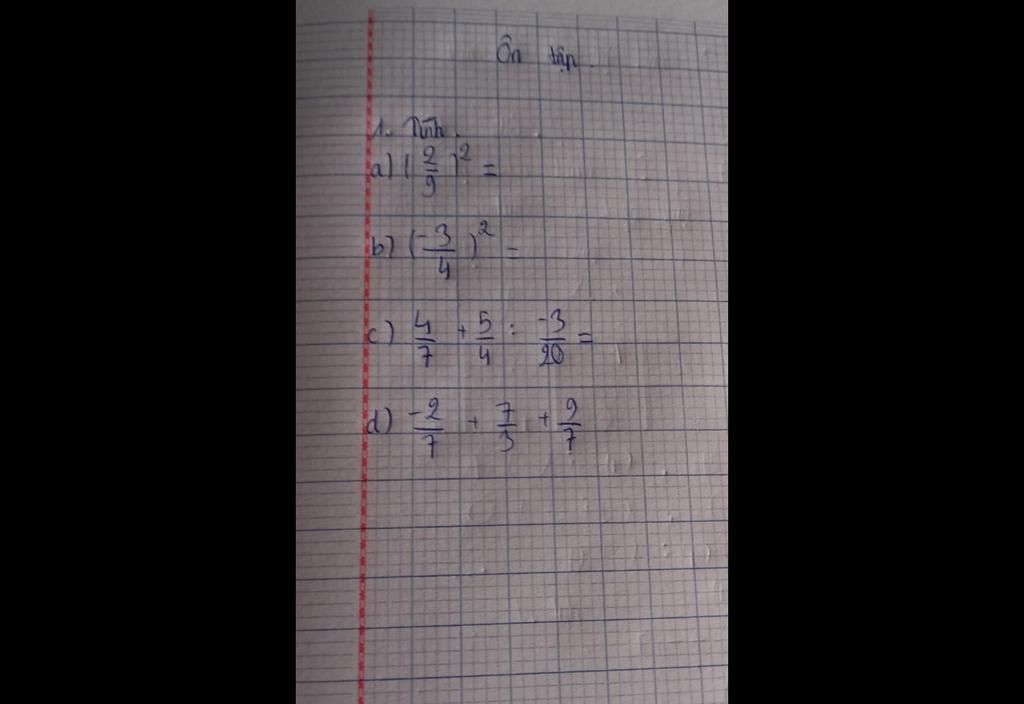 Ôn tập.
1. Tính.
a) (2/9)² =
b) (-3/4)² =
c) 4/7 + 5/4 : -3/20 =
d) -2/7 + 7/3 + 9/7